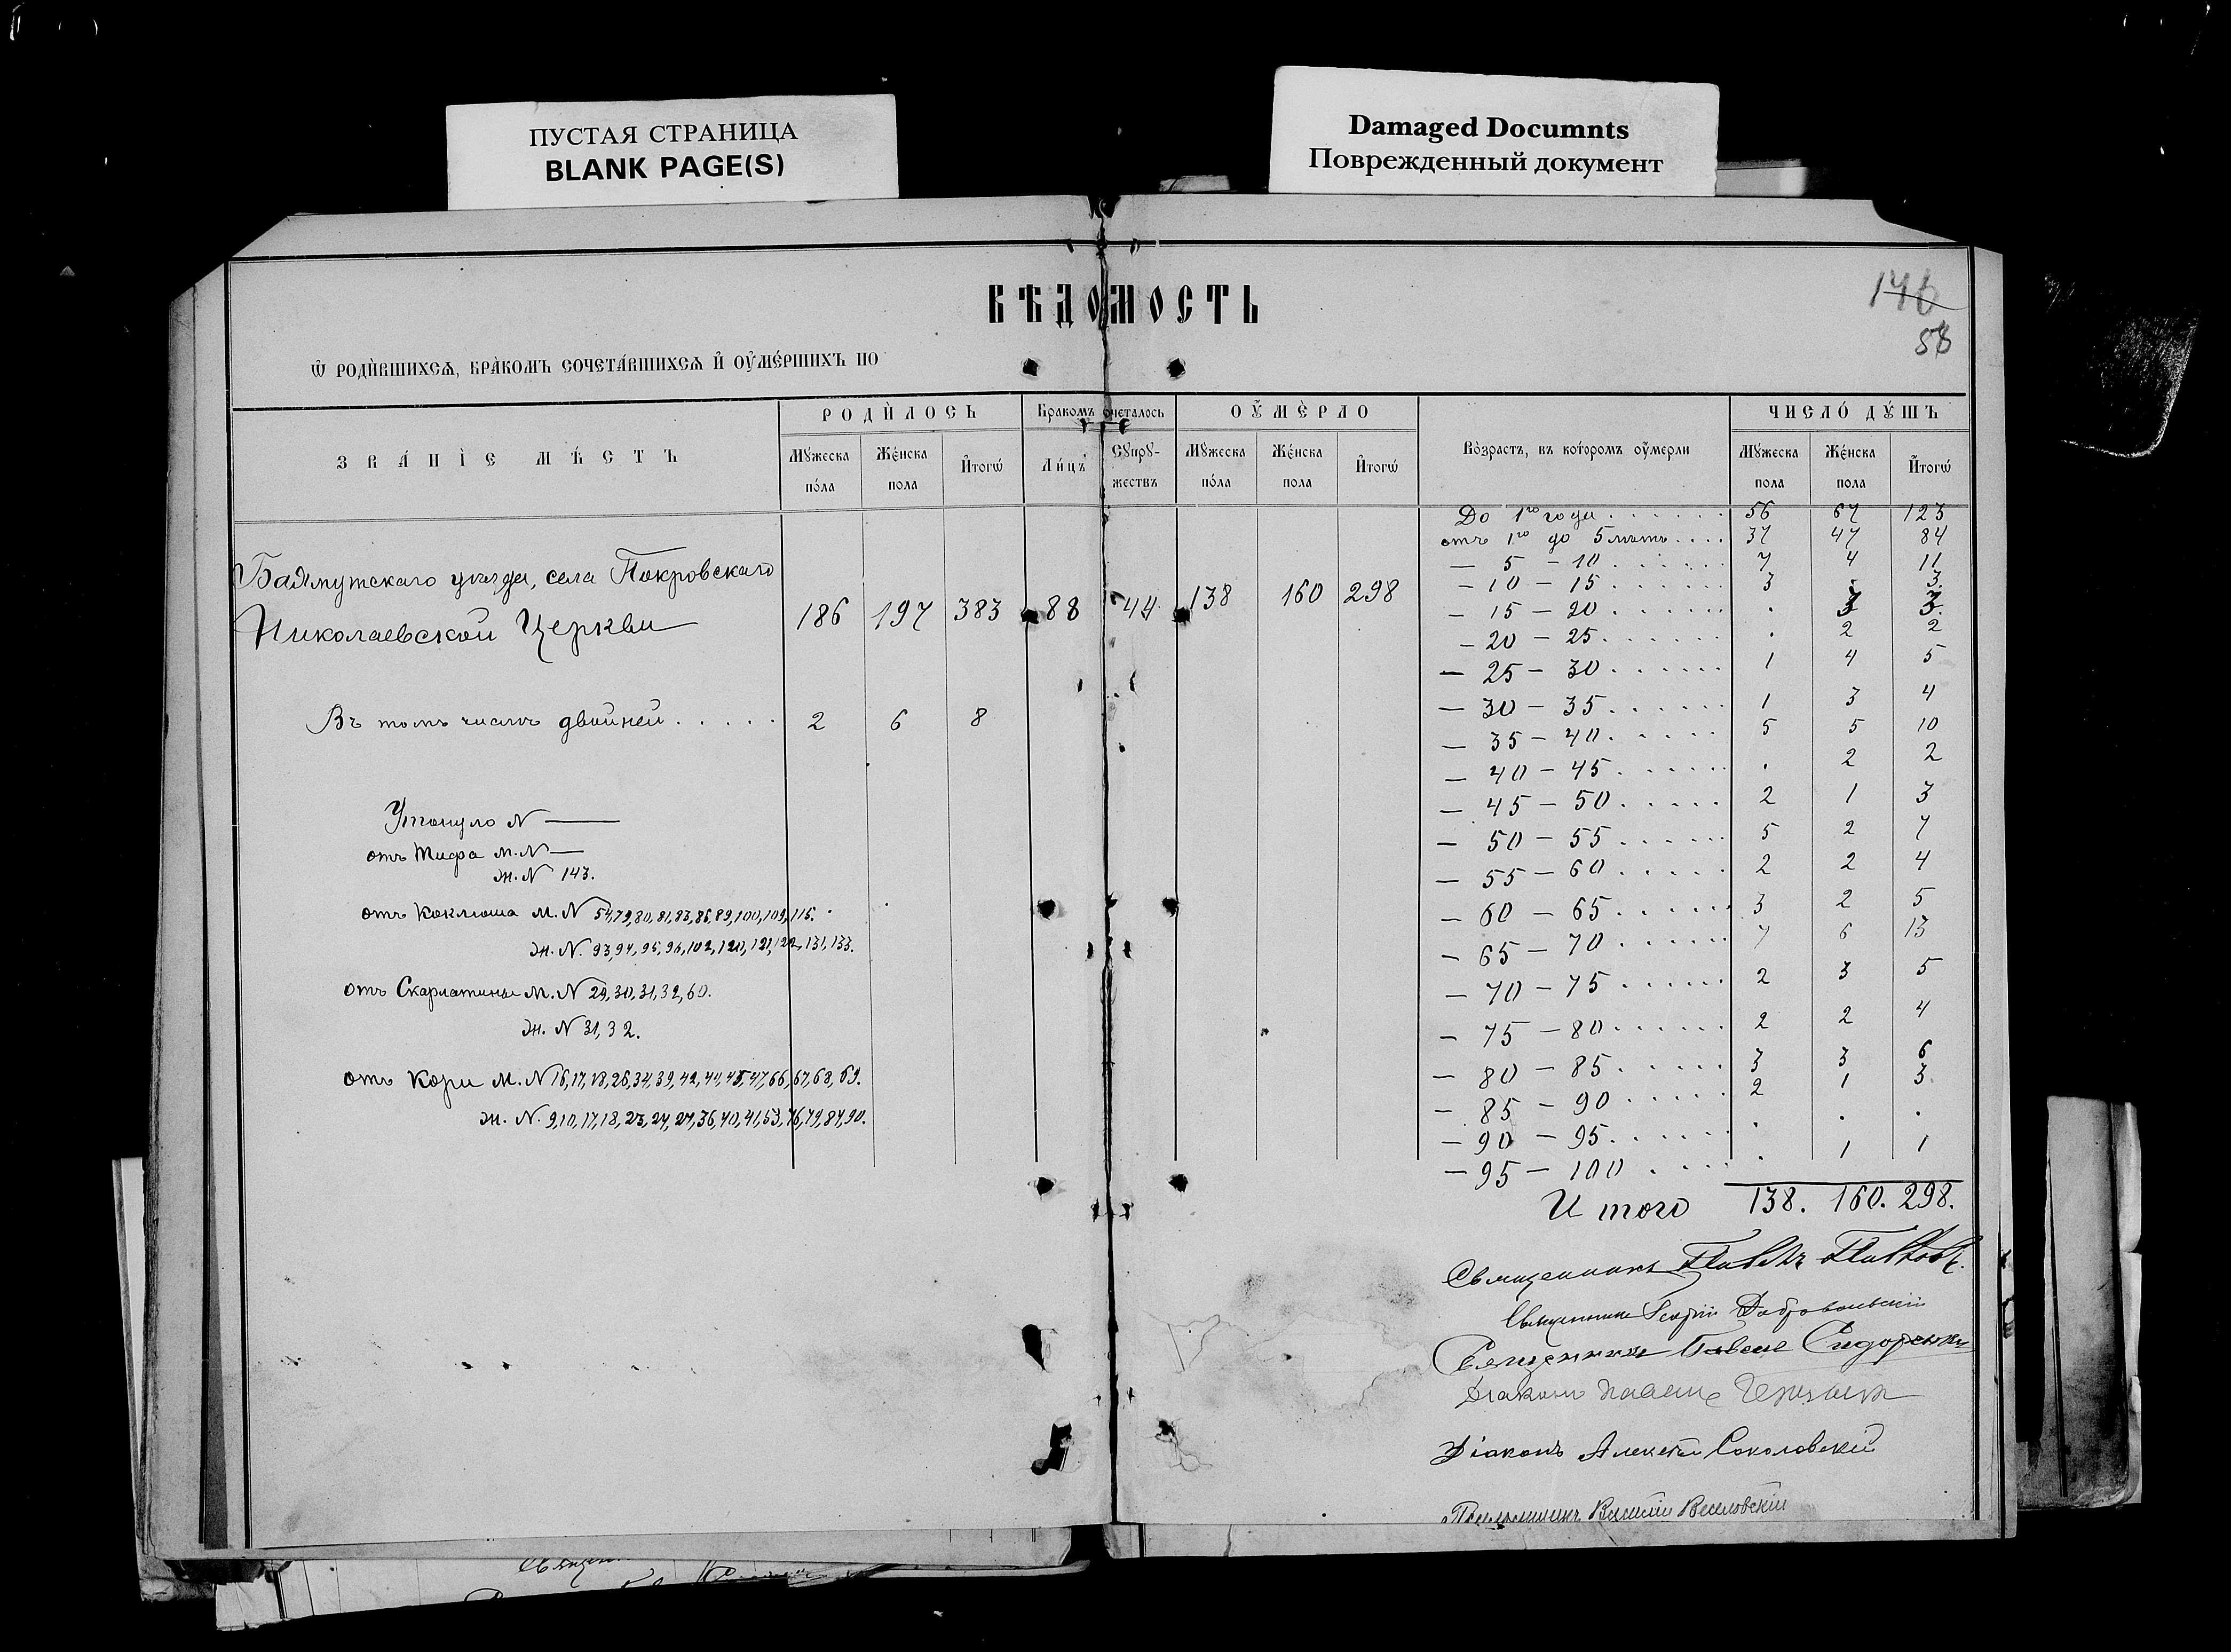 ПУСТАЯ СТРАНИЦА
BLANK PAGE(S)
Damaged Documnts
Поврежденный документ
ВѢДОМОСТЬ
146
58
Ѡ РОДИ́ВШИХСѦ, БРА́КОМЪ СОЧЕТА́ВШИХСѦ И҆ ОУ҆МЕ́РШИХЪ ПО
ЗВА́НІЕ МѢ́СТЪ
РОДИ́ЛОСЬ
Бракомъ сочеталось
ОУ҆МЕ́РЛО
Во́зрастъ, въ кото́ромъ оу҆мерли
ЧИСЛО́ ДУ́ШЪ
Му́жеска по́ла
Же́нска пола
И҆того̀
Ли́цъ
Супружествъ
Му́жеска по́ла
Же́нска пола
И҆того̀
Му́жеска пола
Же́нска пола
И҆того̀
Бахмутскаго уѣзда, села Покровскаго
Николаевской Церкви 186 197 383 88 44 138 160 298
Въ томъ числѣ двойней . . . . . 2 6 8
Утонуло N —
отъ Тифа м. N —
ж. N 143.
отъ Коклюша м. N 54,79,80,81,83,86,89,100,109,115.
ж. N. 93,94,95,96,102,120,121,122,131,133.
отъ Скарлатины м. N 29,30,31,32,60.
ж. N 31,32.
отъ Кори м. N 16,17,18,26,34,39,42,44,45,47,66,67,68,69.
ж. N. 9,10,17,18,23,24,27,36,40,41,53,76,79,87,90.
До 1го года . . . . . . 56 67 123
отъ 1го до 5 лѣтъ . . . . 37 47 84
— 5 — 10 . . . . . . 7 4 11
— 10 — 15 . . . . . . 3 . 3.
— 15 — 20 . . . . . . . 3 3.
— 20 — 25 . . . . . . . 2 2
— 25 — 30 . . . . . . 1 4 5
— 30 — 35 . . . . . . 1 3 4
— 35 — 40 . . . . . 5 5 10
— 40 — 45 . . . . . . . 2 2
— 45 — 50 . . . . . 2 1 3
— 50 — 55 . . . . . . 5 2 7
— 55 — 60 . . . . . 2 2 4
— 60 — 65 . . . . . . 3 2 5
— 65 — 70 . . . . . . 7 6 13
— 70 — 75 . . . . . . 2 3 5
— 75 — 80 . . . . . . 2 2 4
— 80 — 85 . . . . . 3 3 6
— 85 — 90 . . . . . 2 1 3.
— 90 — 95 . . . . . . . . .
— 95 — 100 . . . . . 1 1
Итого 138. 160. 298.
Священникъ Павелъ
Священникъ Георгій Добровольскій
Священникъ Павелъ Сидоренко
Діаконъ Павелъ
Діаконъ Алексѣй Соколовскій
Псаломщикъ Василій Веселовскій